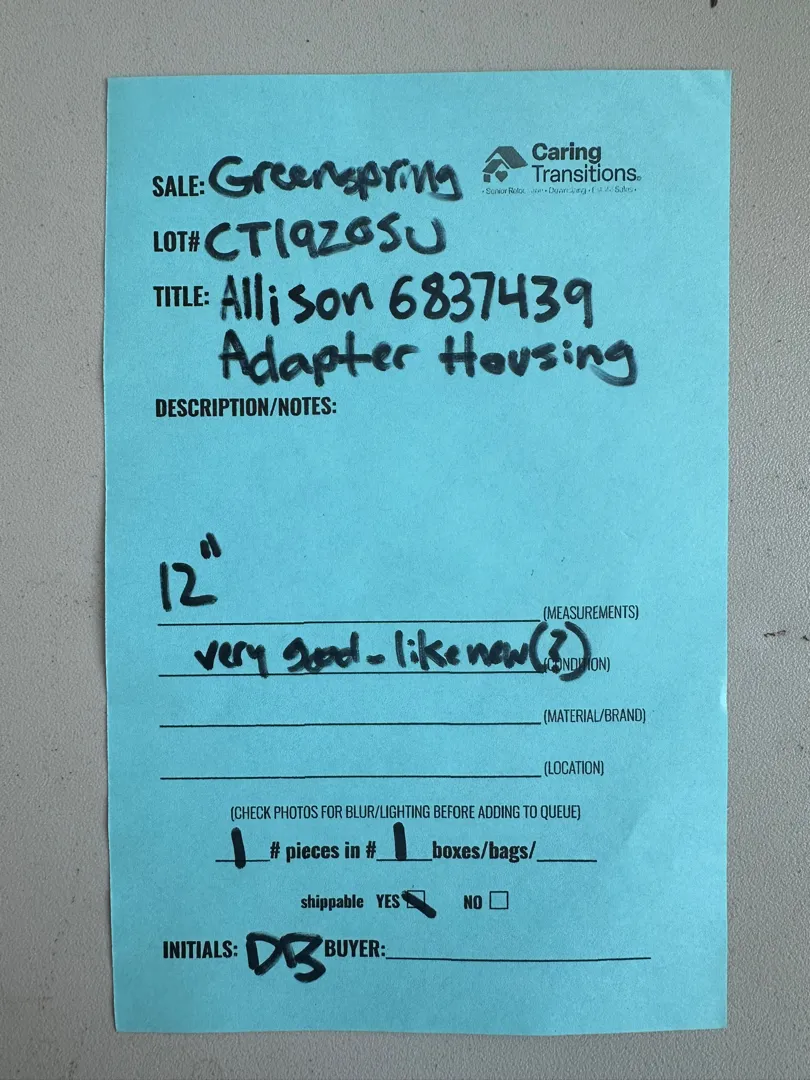 Caring
Transitions®
SALE: Greenspring
LOT# CT192GSU
TITLE: Allison 6837439
Adapter Housing
DESCRIPTION/NOTES:
12"
(MEASUREMENTS)
very good - like new (?)
(CONDITION)
(MATERIAL/BRAND)
(LOCATION)
(CHECK PHOTOS FOR BLUR/LIGHTING BEFORE ADDING TO QUEUE)
1 # pieces in # 1 boxes/bags/
shippable YES NO
INITIALS: DB BUYER: